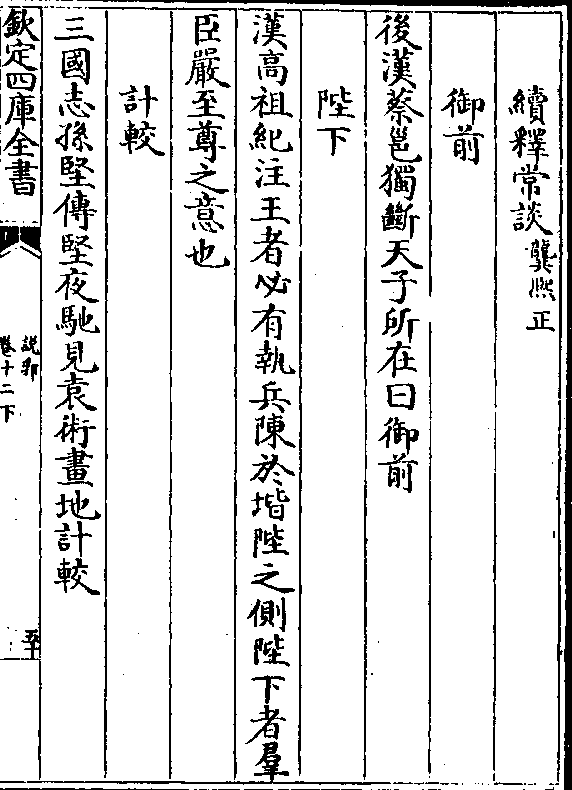 續釋常談龔熈正
御前
後漢蔡邕獨斷天子所在曰御前
陛下
漢高祖紀注王者必有執兵陳於堦陛之側陛下者羣
臣嚴至尊之意也
計較
三國志孫堅傳堅夜馳見袁術畫地計較
欽定四庫全書
說郛
卷十二下